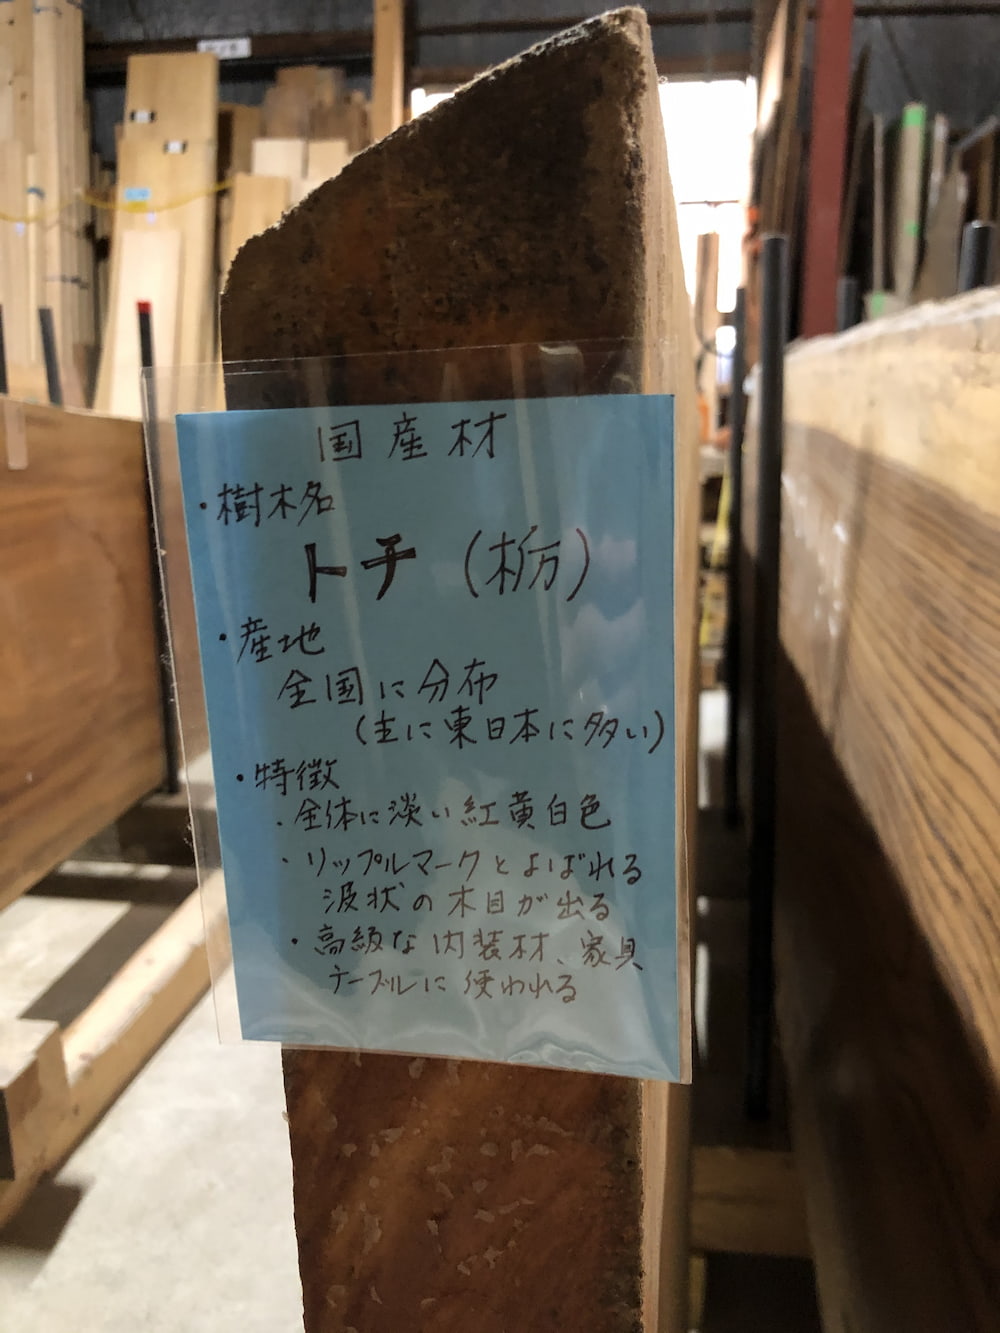 国産材
・樹木名
トチ (栃)
・産地
全国に分布
(主に東日本に多い)
・特徴
・全体に淡い紅黄白色
・リップルマークとよばれる
波状の木目が出る
・高級な内装材、家具
テーブルに使われる